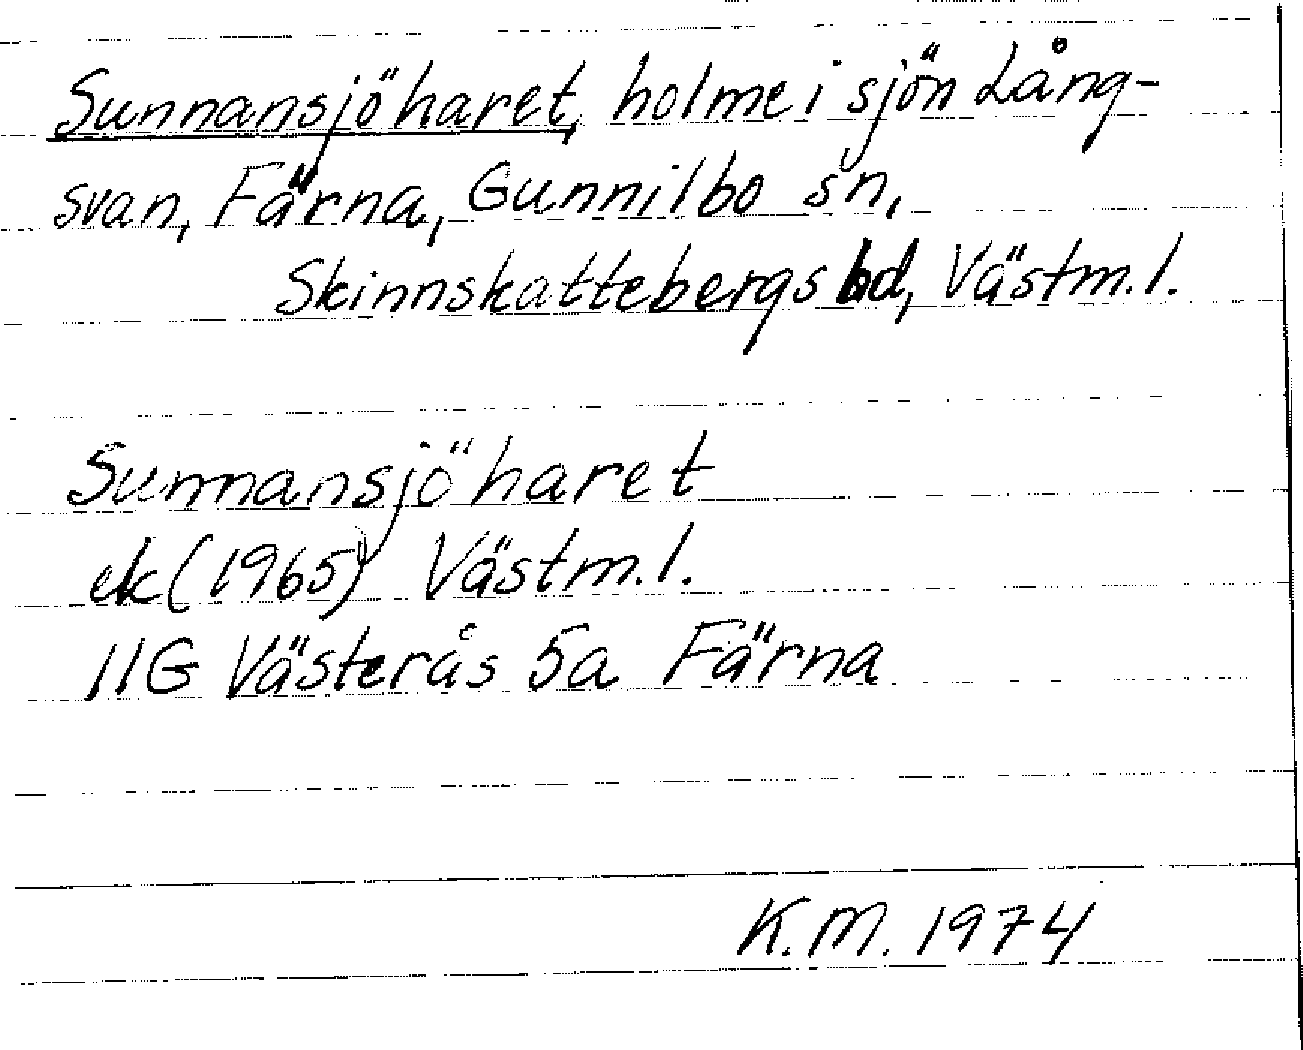 Sunnansjöharet, holme i sjön Lång-
svan, Färna, Gunnilbo sn,
Skinnskattebergs bd, Västm.l.
Sunnansjöharet
ek (1965) Västm.l.
11G Västerås 5a Färna
K.M. 1974